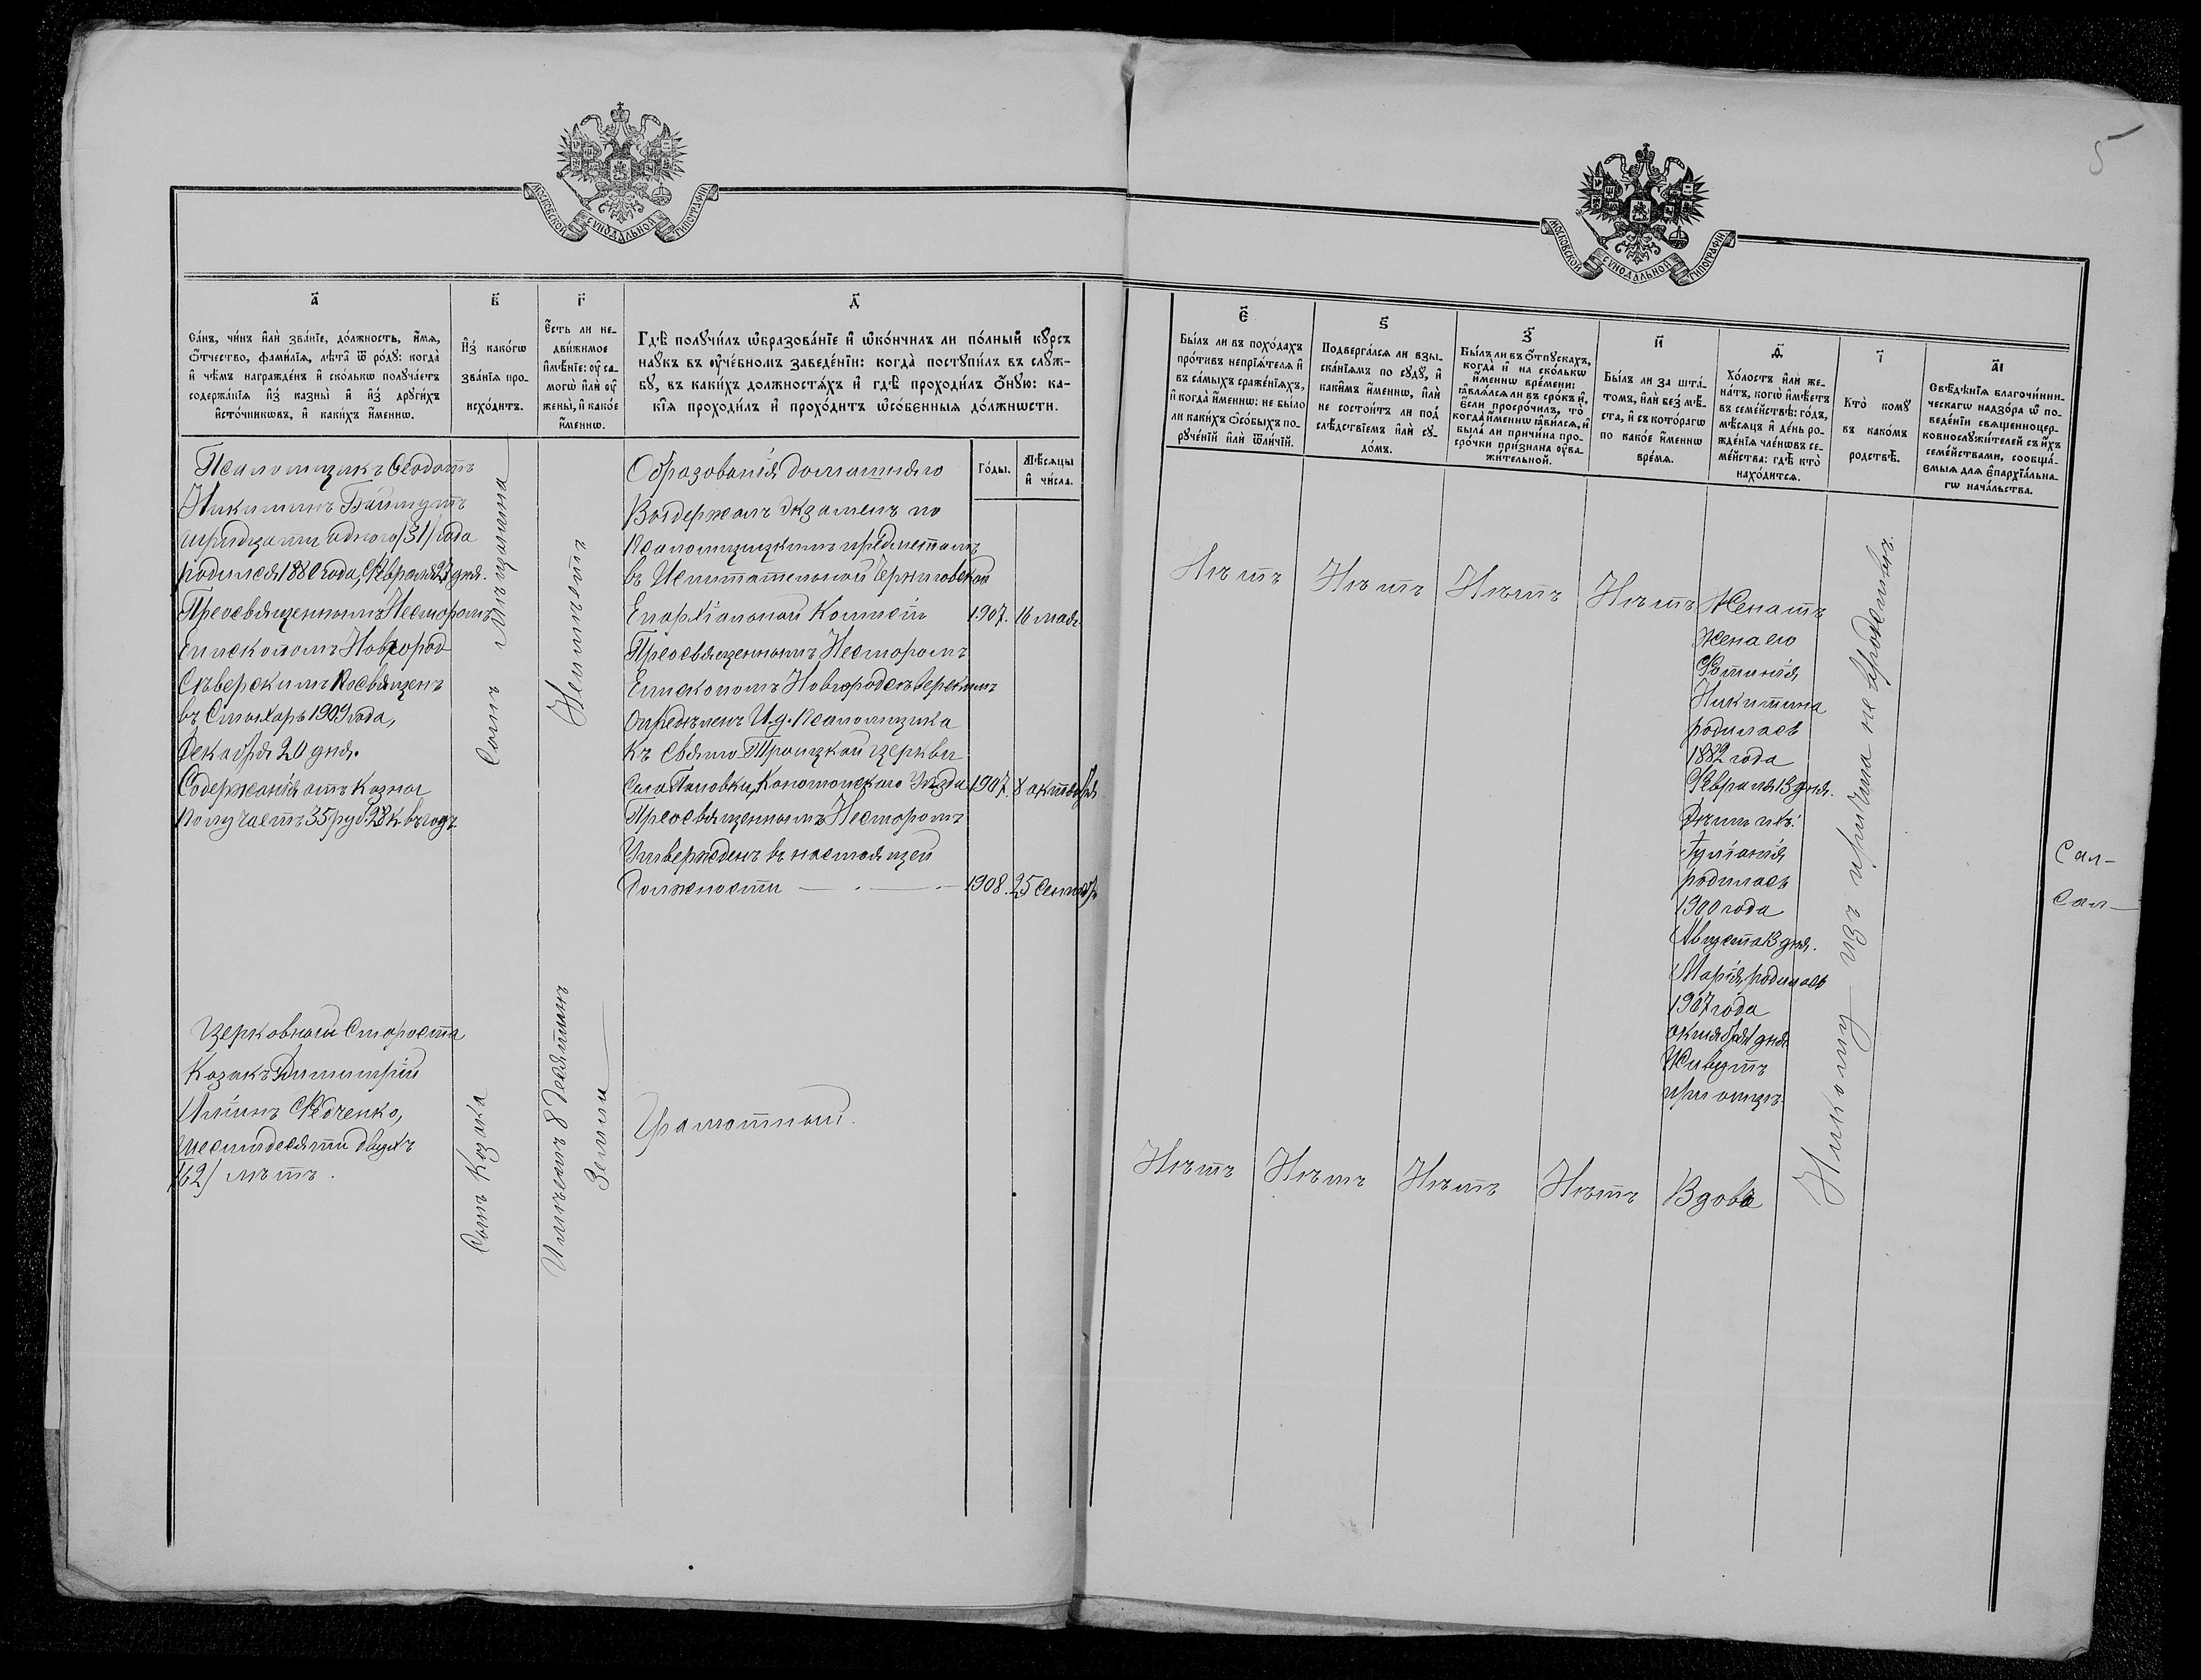 5
МОСКОВСКОЙ СѴНОДАЛЬНОЙ ТИПОГРАФІИ
МОСКОВСКОЙ СѴНОДАЛЬНОЙ ТИПОГРАФІИ
а҃
Са́нъ, чи́нъ и҆лѝ зва́нїе, до́лжность, и҆́мѧ,
ѻ҆́тчество, фами́лїѧ, лѣ́та ѿ ро́дꙋ: когда̀
и҆ чѣ́мъ награжде́нъ и҆ ско́лькѡ получа́етъ
содержа́нїѧ и҆з̾ казны̀ и҆ и҆з̾ други́хъ
и҆сто́чникѡвъ, и҆ каки́хъ и҆́меннѡ.
в҃
И҆з̾ како́гѡ
зва́нїѧ про-
исхо́дитъ.
г҃
Е҆́сть ли не-
дви́жимое
и҆мѣ́нїе: ᲂу҆ са-
могѡ̀ и҆лѝ ᲂу҆
жены̀, и҆ како́е
и҆́меннѡ.
д҃
Гдѣ̀ полꙋчи́лъ ѡ҆бразова́нїе и҆ ѡ҆ко́нчилъ ли по́лный кꙋ́рсъ
наꙋ́къ въ ᲂу҆че́бномъ заведе́нїи: когда̀ постꙋпи́лъ въ слꙋ́ж-
бꙋ, въ каки́хъ должностѧ́хъ и҆ гдѣ̀ проходи́лъ ѻ҆́нꙋю: ка-
кі́ѧ проходи́лъ и҆ прохо́дитъ ѡ҆со́бенныѧ до́лжнѡсти.
Го́ды.
Мѣ́сѧцы
и҆ чи́сла.
Псаломщикъ Ѳеодотъ
Никитинъ
тридцати одного /31/ года
родился 1880 года, Февраля 27 дня.
Преосвященнымъ Несторомъ
Епископомъ Новгород
Сѣверскимъ посвященъ
въ Стихарь 1909 года,
Декабря 20 дня.
Содержанія отъ Казны
получаетъ 35 руб. 28 к. въ годъ
Сынъ Мѣщанина
Неимѣетъ
Образованія домашняго
Выдержалъ экзаменъ по
Псаломщицкимъ предметамъ
въ Испытательной Черниговской
Епархіальной Комисіи 1907. 16 мая.
Преосвященнымъ Несторомъ
Епископомъ Новгородсѣверскимъ
опредѣленъ И. д. псаломщика
къ Свято-Троицкой церкви
села Поповки, Конотопскаго Уѣзда 1907. 8 октября
Преосвященнымъ Несторомъ
Утвержденъ въ настоящей
должности 1908. 25 Сентяб.
Церковный Староста
Козакъ Димитрій
Иліинъ Федченко,
шестидесяти двухъ
/62/ лѣтъ.
Сынъ Козака
Имѣетъ 8 десятинъ
Земли
Грамотный.
є҃
Бы́лъ ли въ похо́дахъ
про́тивъ непрїѧ́телѧ и҆
въ са́мыхъ сраже́нїѧхъ,
и҆ когда̀ и҆́меннѡ: не бы́ло
ли каки́хъ ѻ҆со́быхъ по-
рꙋче́нїй и҆лѝ ѿли́чїй.
ѕ҃
Подверга́лсѧ ли взы-
ска́нїѧмъ по сꙋдꙋ̀, и҆
каки̑мъ и҆́меннѡ, и҆лѝ
не состои́тъ ли под̾
слѣ́дствїемъ и҆лѝ сꙋ-
до́мъ.
з҃
Бы́лъ ли въ ѻ҆́тпꙋскахъ,
когда̀ и҆ на ско́лькѡ
и҆́меннѡ вре́мени:
ꙗ҆влѧ́лсѧ ли въ сро́къ и҆,
є҆́сли просро́чилъ, то̀
когда̀ и҆́меннѡ ꙗ҆ви́лсѧ, и҆
была̀ ли причи́на про-
сро́чки при́знана ᲂу҆ва-
жи́тельной.
и҃
Бы́лъ ли за шта́-
томъ, и҆лѝ без̾ мѣ́-
ста, и҆ съ кото́рагѡ
по како́е и҆́меннѡ
вре́мѧ.
ѳ҃
Хо́лостъ и҆лѝ же-
на́тъ, когѡ̀ и҆мѣ́етъ
въ семе́йствѣ: го́дъ,
мѣ́сѧцъ и҆ де́нь ро-
жде́нїѧ чле́нѡвъ се-
ме́йства: гдѣ̀ кто̀
нахо́дитсѧ.
і҃
Кто̀ комꙋ̀
въ како́мъ
родствѣ̀.
а҃і
Свѣ́дѣнїѧ благочи́нни-
ческагѡ надзо́ра ѡ҆ по-
веде́нїи свѧщенноцер-
ковнослꙋжи́телей съ и҆́хъ
семе́йствами, сообща́-
ємыѧ для є҆парҳїа́льна-
гѡ нача́льства.
Нѣтъ
Нѣтъ
Нѣтъ
Нѣтъ
Женатъ
жена его
Фотинія
Никитина
родилась
1882 года
Февраля 13 дня.
Дѣти ихъ:
Іуліанія
родилась
1900 года
Августа 13 дня.
Марія, родилась
1907 года
октября 1 дня
Живутъ
при отцѣ.
Никому изъ причта не въ родствѣ.
Нѣтъ
Нѣтъ
Нѣтъ
Нѣтъ
Вдовъ